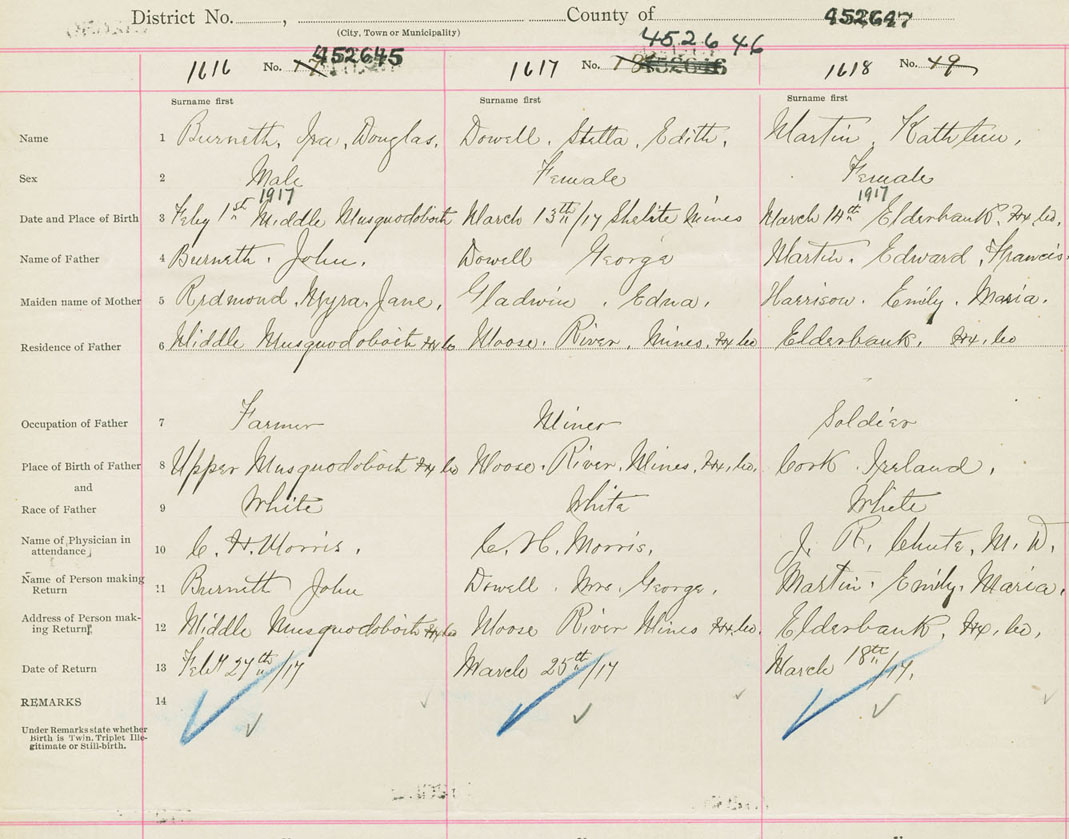 District No. , County of 452647
(City, Town or Municipality)
452645 452646
1616 No. 17 1617 No. 18 452646 1618 No. 49
Surname first Surname first Surname first
Name 1 Burneth, Ira, Douglas. Dowell. Stella, Edith. Martin, Kathleen,
Sex 2 Male Female Female
1917 1917
Date and Place of Birth 3 Feby 1st Middle Musquodoboit March 13th/17 Shelite Mines March 14th Elderbank, Hx, Co,
Name of Father 4 Burneth. John. Dowell George Martin. Edward, Francis.
Maiden name of Mother 5 Redmond, Myra, Jane, Gladwin, Edna, Harrison. Emily. Maria.
Residence of Father 6 Middle Musquodoboit Hx Co Moose. River. Mines. Hx Co Elderbank, Hx, Co
Occupation of Father 7 Farmer Miner Soldier
Place of Birth of Father 8 Upper Musquodoboit Hx Co Moose. River. Mines. Hx, Co, Cork Ireland,
and
Race of Father 9 White White White
Name of Physician in
attendance 10 C. H. Morris. C. H. Morris, J. R. Chute, M. D.
Name of Person making
Return 11 Burneth John Dowell. Mrs. George. Martin. Emily. Maria.
Address of Person mak-
ing Return 12 Middle Musquodoboit Hx Co Moose River Mines Hx, Co. Elderbank, Hx, Co,
Date of Return 13 Feby 27th/17 March 25th/17 March 18th/17.
REMARKS 14
Under Remarks state whether
Birth is Twin, Triplet Ille-
gitimate or Still-birth.